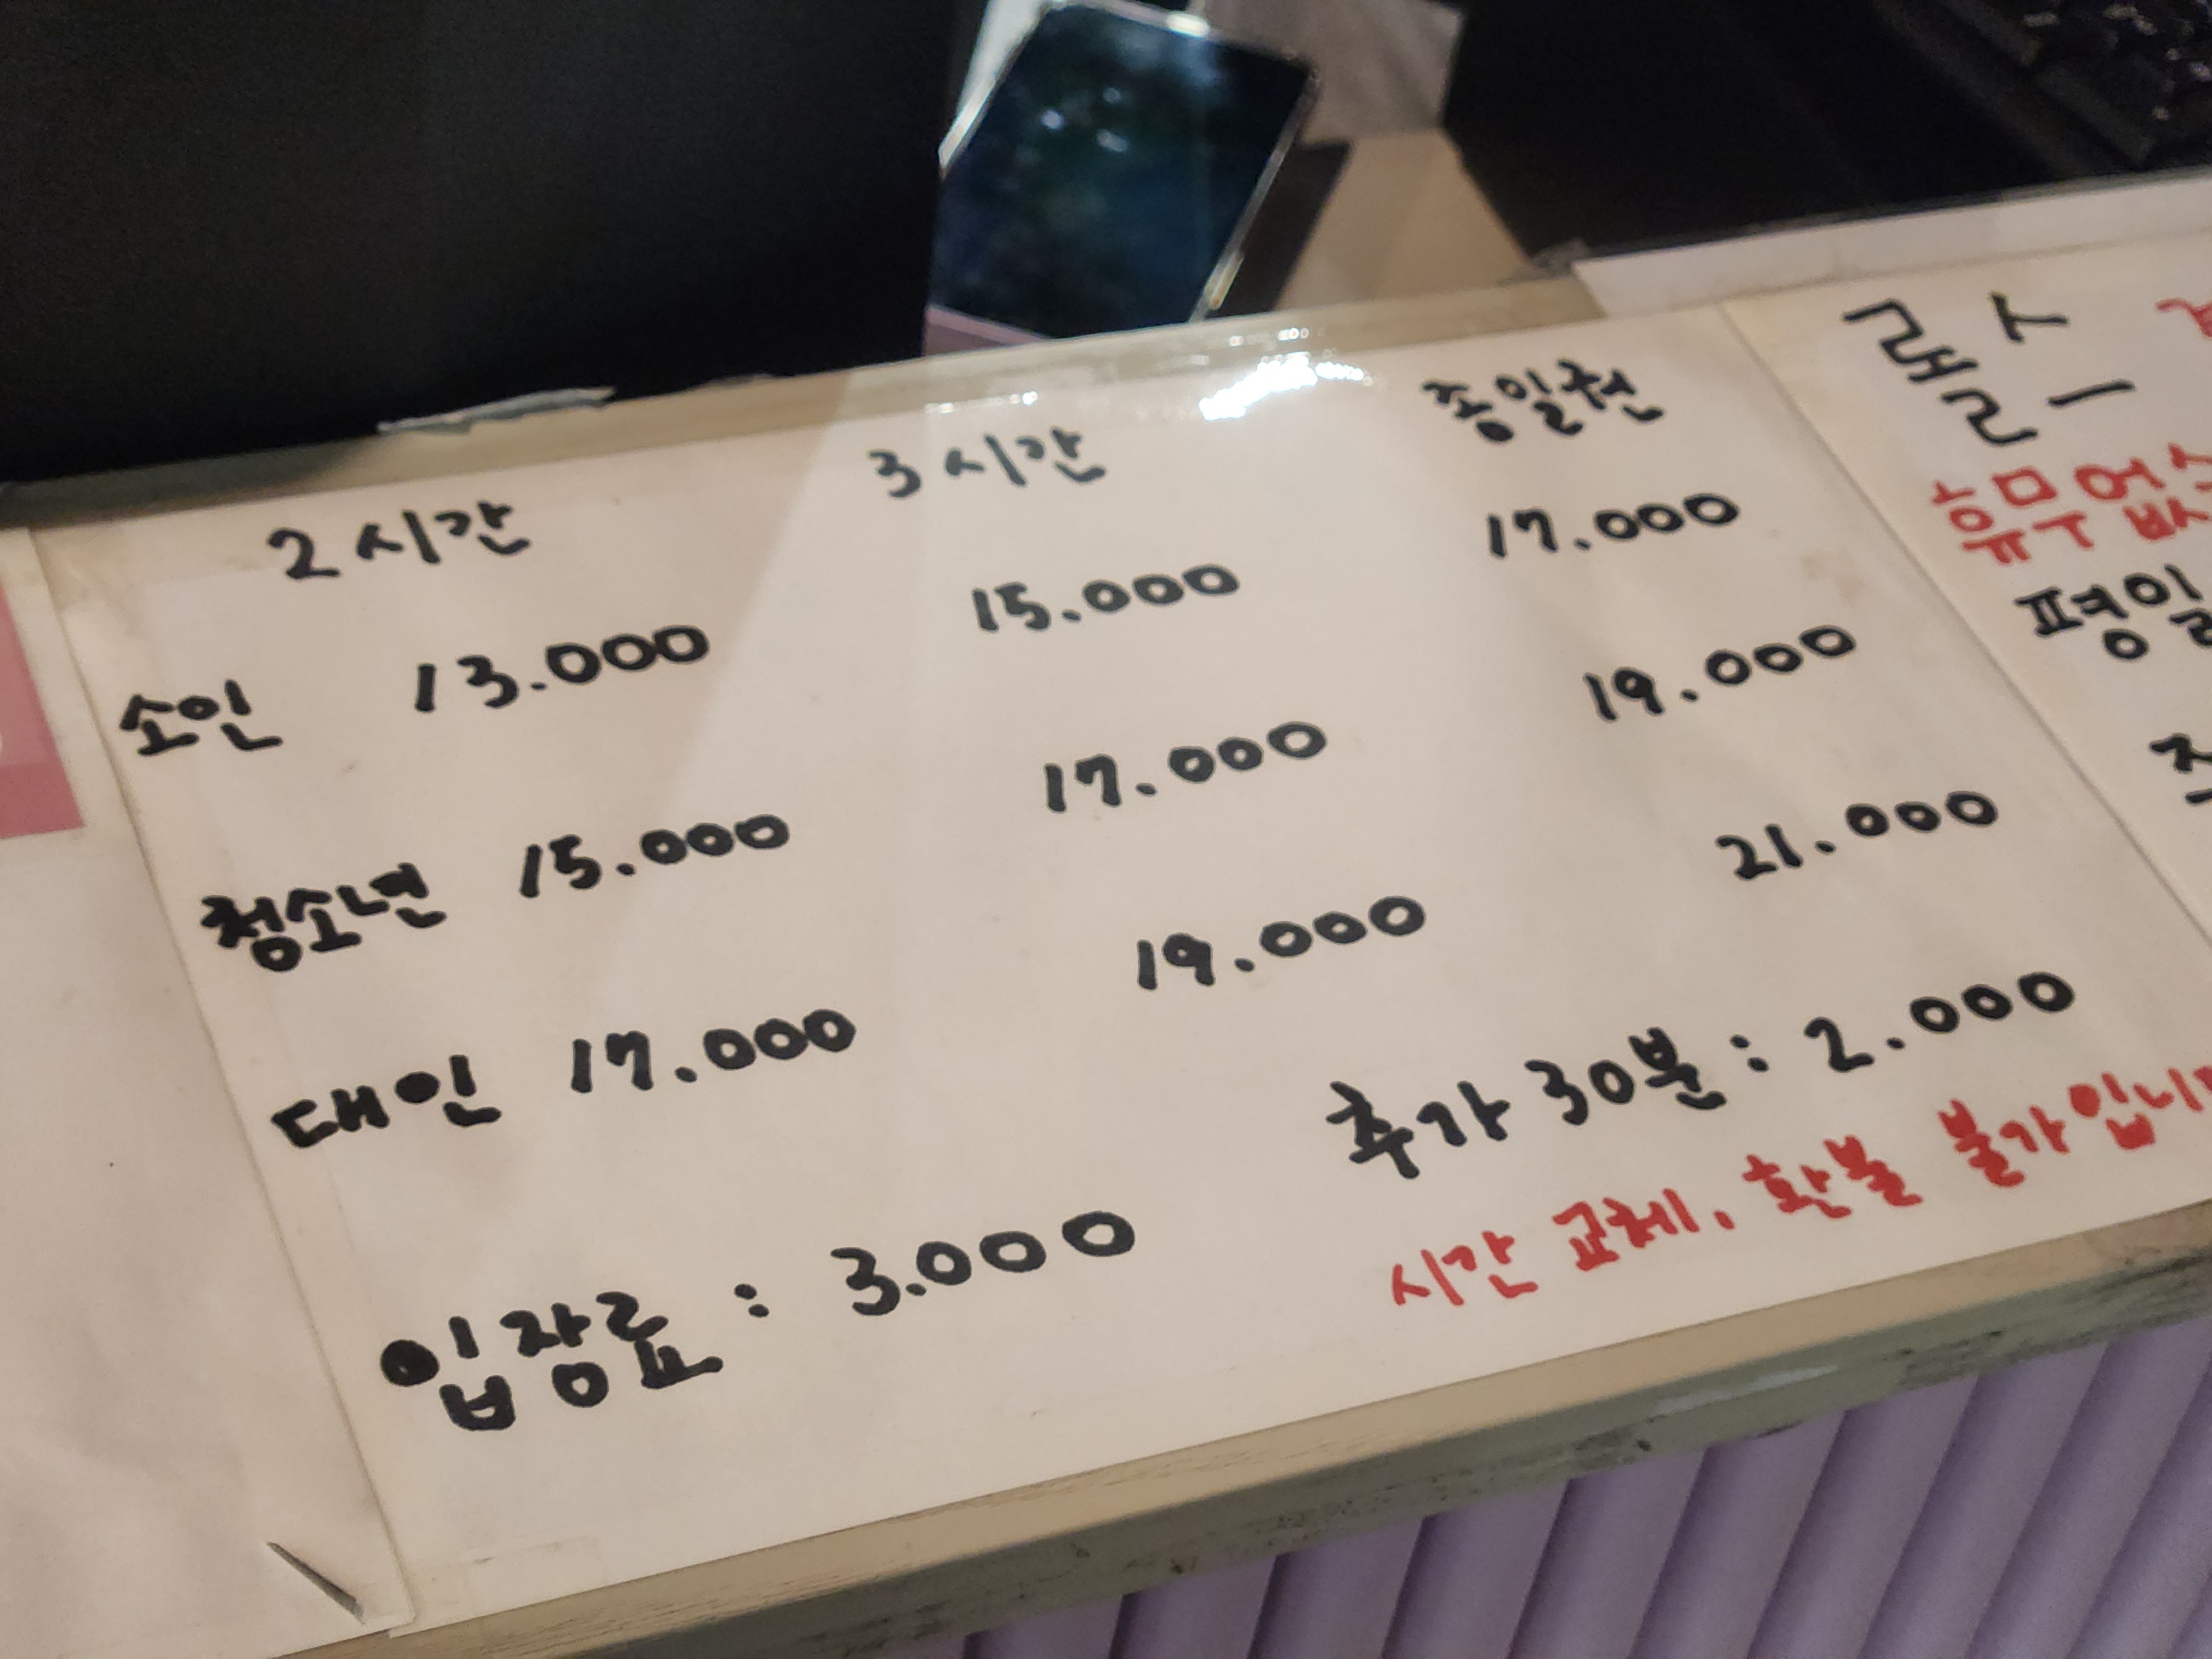 2시간 3시간 종일권
소인 13.000 15.000 17.000
청소년 15.000 17.000 19.000
대인 17.000 19.000 21.000
추가 30분 : 2.000
입장료 : 3.000
시간 교체. 환불 불가입니
롤
스
휴무 없
평일